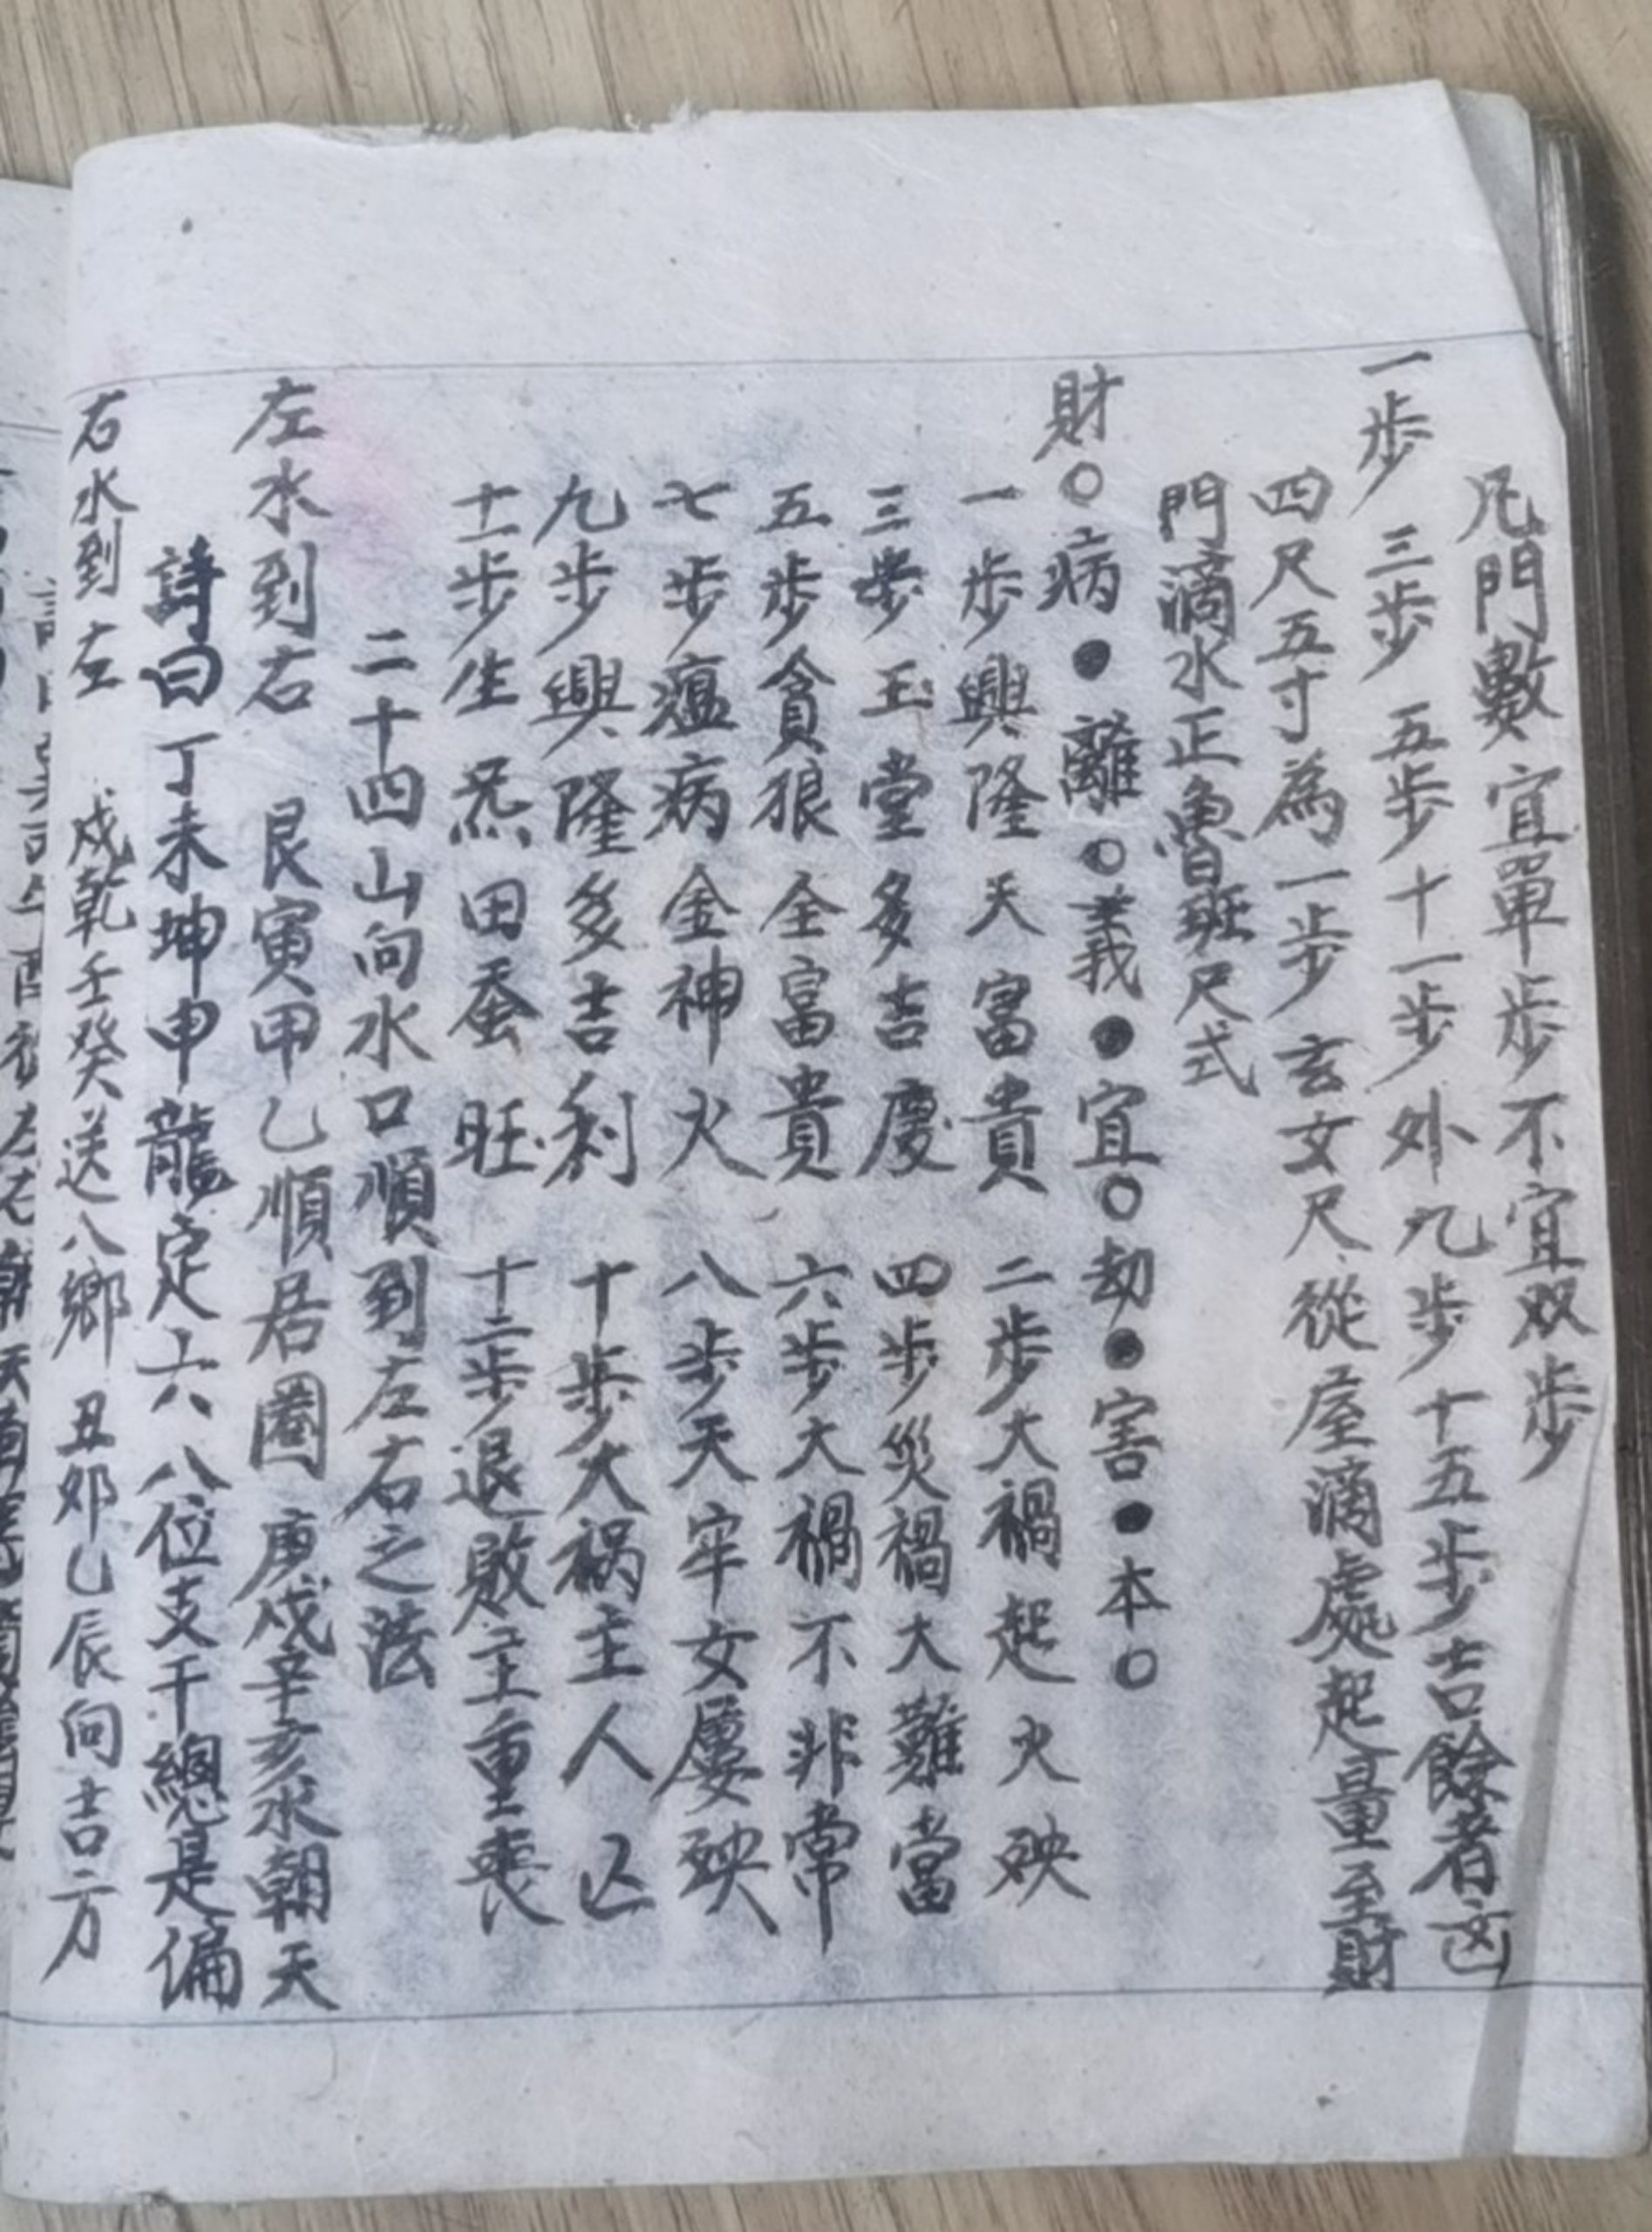 凡門數宜單步不宜双步
一步 三步 五步十一步外九步十五步吉餘者凶
四尺五寸為一步玄女尺從屋滴處起量至財
門滴水正魯班尺式
財○病●離○義●宜○劫●害●本○
一步興隆天富貴 二步大禍起火殃
三步玉堂多吉慶 四步災禍大難當
五步貪狼全富貴 六步大禍不非常
七步瘟病金神火 八步天牢女屢殃
九步興隆多吉利 十步大祸主人亡
十一步生炁田蚕旺 十二步退敗主重喪
二十四山向水口順到左右之法
左水到右 艮寅甲乙順居圈 庚戌辛亥水朝天
詩曰丁未坤申龍定六八位支干總是偏
右水到左 戌乾壬癸送八鄉 丑卯乙辰向吉方